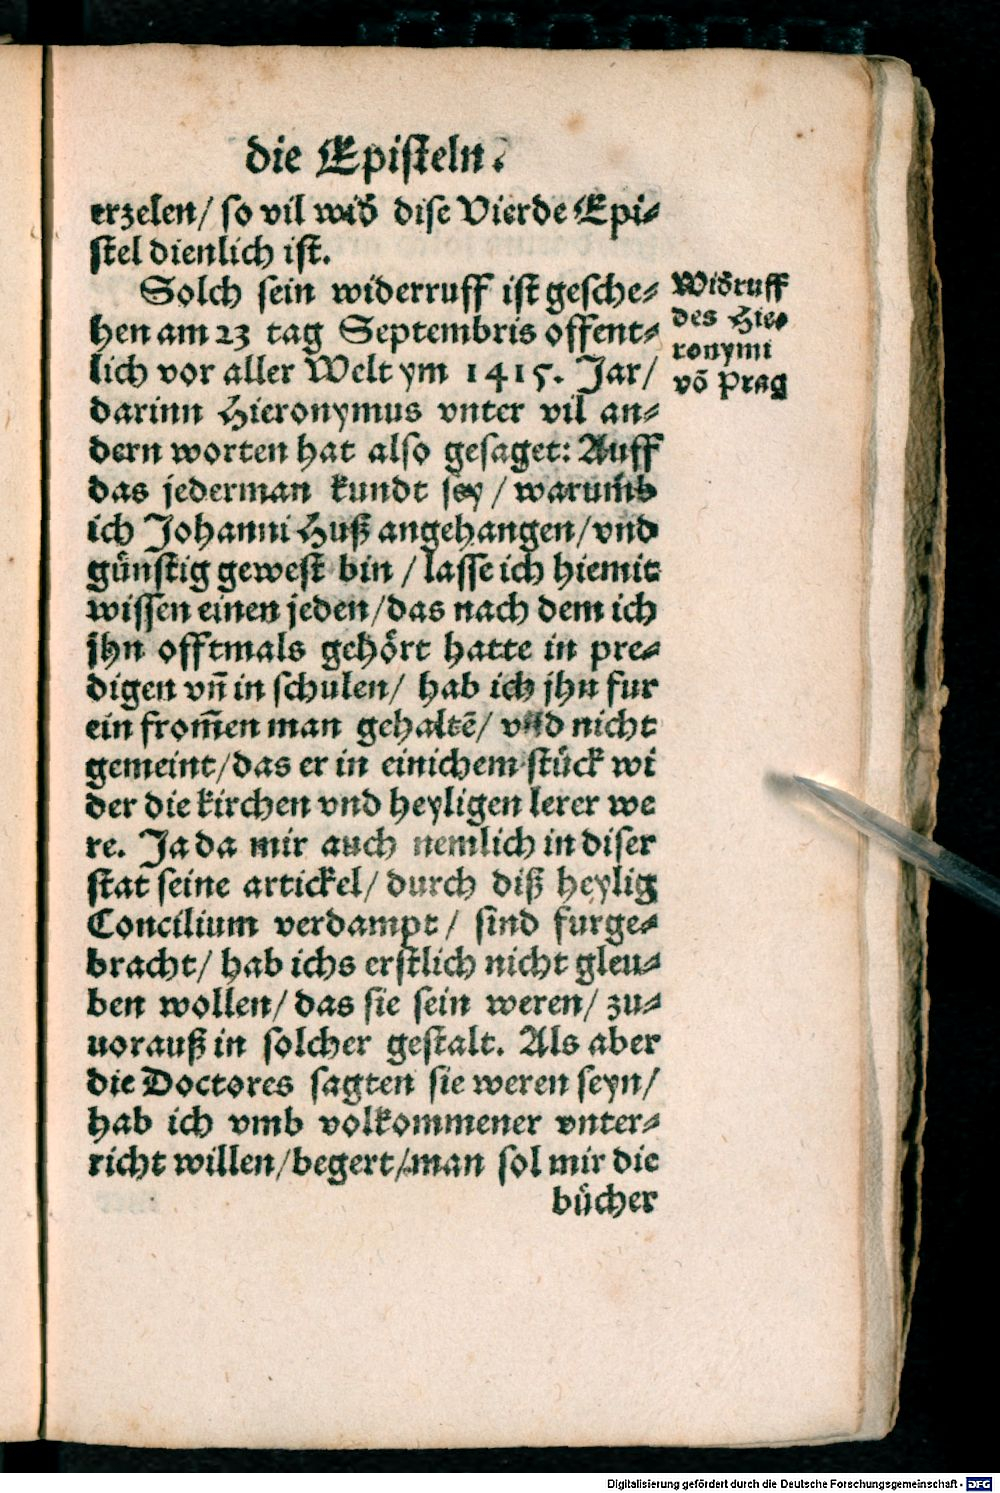 die Episteln.
erzelen/ so vil wid̄ dise Vierde Epi⸗
stel dienlich ist.
Solch sein widerruff ist gesche⸗
hen am 23 tag Septembris offent⸗
lich vor aller Welt ym 1415. Jar/
darinn Hieronymus vnter vil an⸗
dern worten hat also gesaget: Auff
das jederman kundt sey / warum̄b
ich Johanni Huß angehangen/ vnd
gůnstig gewest bin / lasse ich hiemit
wissen einen jeden/ das nach dem ich
jhn offtmals gehoͤrt hatte in pre⸗
digen vn̄ in schulen/ hab ich jhn fur
ein from̄en man gehaltē/ vnd nicht
gemeint/ das er in einichem stuͤck wi
der die kirchen vnd heyligen lerer we
re. Ja da mir auch nemlich in diser
stat seine artickel/ durch diß heylig
Concilium verdampt/ sind furge⸗
bracht/ hab ichs erstlich nicht gleu⸗
ben wollen/ das sie sein weren/ zu⸗
uorauß in solcher gestalt. Als aber
die Doctores sagten sie weren seyn/
hab ich vmb volkommener vnter⸗
richt willen/ begert/ man sol mir die
buͤcher
Wid̄ruff
des Hie⸗
ronymi
vō Prag
Digitalisierung gefördert durch die Deutsche Forschungsgemeinschaft - DFG